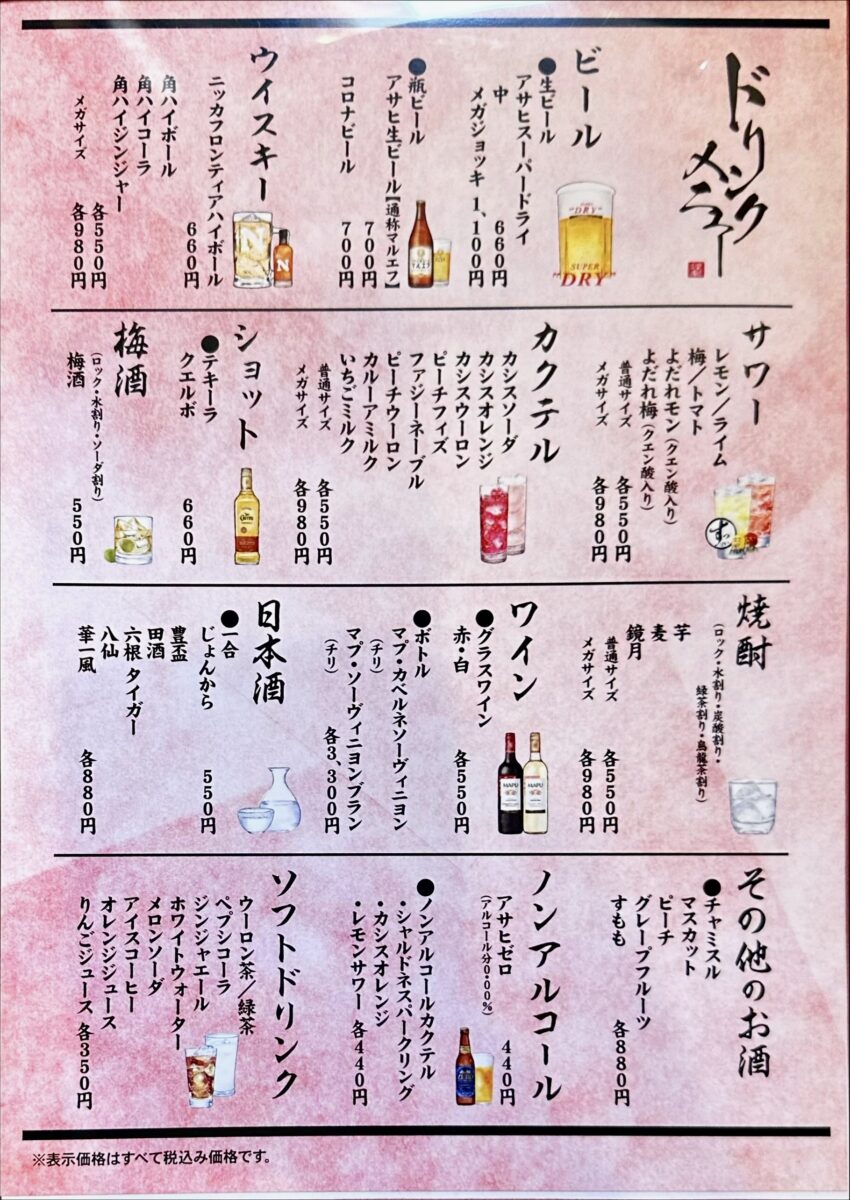 ドリンクメニュー
ビール
●生ビール
アサヒスーパードライ
中 660円
メガジョッキ 1,100円
●瓶ビール
アサヒ生ビール【通称マルエフ】
700円
コロナビール 700円
"DRY"
SUPER
"DRY"
ウイスキー
ニッカフロンティアハイボール
660円
角ハイボール
角ハイコーラ
角ハイジンジャー
各550円
メガサイズ 各980円
N
N
サワー
レモン/ライム
梅/トマト
よだれモン(クエン酸入り)
よだれ梅(クエン酸入り)
普通サイズ 各550円
メガサイズ 各980円
カクテル
カシスソーダ
カシスオレンジ
カシスウーロン
ピーチフィズ
ファジーネーブル
ピーチウーロン
カルーアミルク
いちごミルク
普通サイズ 各550円
メガサイズ 各980円
ショット
●テキーラ
クエルボ 660円
梅酒
(ロック・水割り・ソーダ割り)
梅酒 550円
焼酎
(ロック・水割り・炭酸割り・
緑茶割り・烏龍茶割り)
芋
麦
鏡月
普通サイズ 各550円
メガサイズ 各980円
ワイン
●グラスワイン
赤・白 各550円
●ボトル
マプ・カベルネソーヴィニヨン
(チリ)
マプ・ソーヴィニヨンブラン
(チリ) 各3,300円
MAPU
MAPU
日本酒
●一合
じょんから 550円
豊盃
田酒
六根 タイガー
八仙
華一風 各880円
その他のお酒
●チャミスル
マスカット
ピーチ
グレープフルーツ
すもも 各880円
ノンアルコール
アサヒゼロ 440円
(アルコール分0.00%)
●ノンアルコールカクテル
・シャルドネスパークリング
・カシスオレンジ
・レモンサワー 各440円
ソフトドリンク
ウーロン茶/緑茶
ペプシコーラ
ジンジャエール
ホワイトウォーター
メロンソーダ
アイスコーヒー
オレンジジュース
りんごジュース 各350円
※表示価格はすべて税込み価格です。